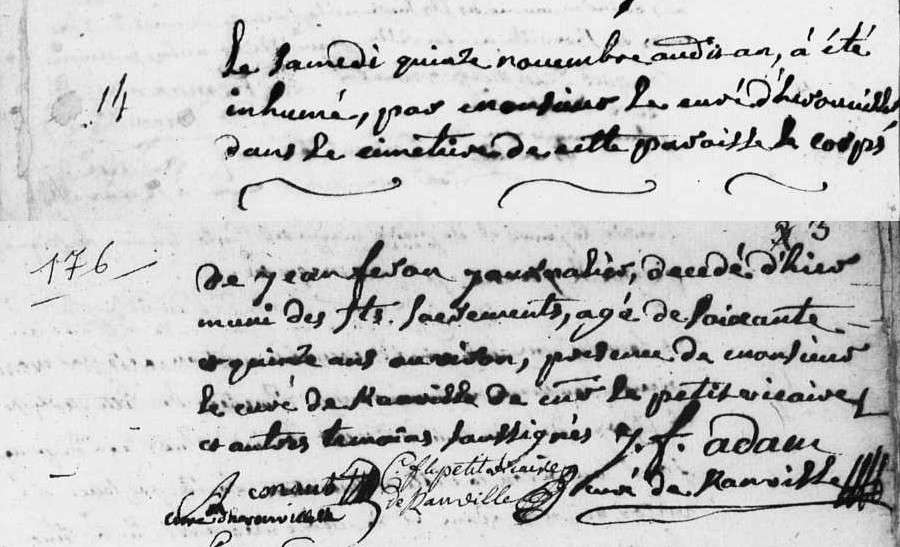 Le samedi quinze novembre audit an, a été
14
inhumé, par monsieur le curé d'herouville
dans le cimetiere de cette paroisse le corps
176
de jean feron journalier, decedé d'hier
muni des sts. sacrements, agé de soixante
et quinze ans environ, presence de monsieur
le curé de Ranville de mr le petit vicaire
et autres temoins soussignés J. f. adam
curé de Ranville
C. f. lepetit vicaire
de Ranville
curé d'herouville